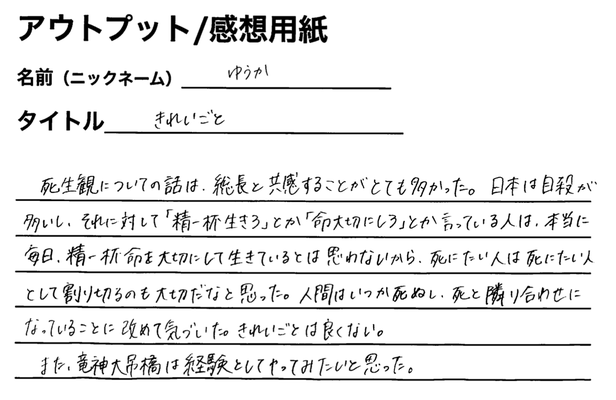 アウトプット/感想用紙
名前（ニックネーム） ゆうか
タイトル きれいごと
死生観についての話は、総長と共感することがとても多かった。日本は自殺が
多いし、それに対して「精一杯生きろ」とか「命大切にしろ」とか言っている人は、本当に
毎日、精一杯命を大切にして生きているとは思わないから、死にたい人は死にたい人
として割り切るのも大切だなと思った。人間はいつか死ぬし、死と隣り合わせに
なっていることに改めて気づいた。きれいごとは良くない。
また、竜神大吊橋は経験としてやってみたいと思った。